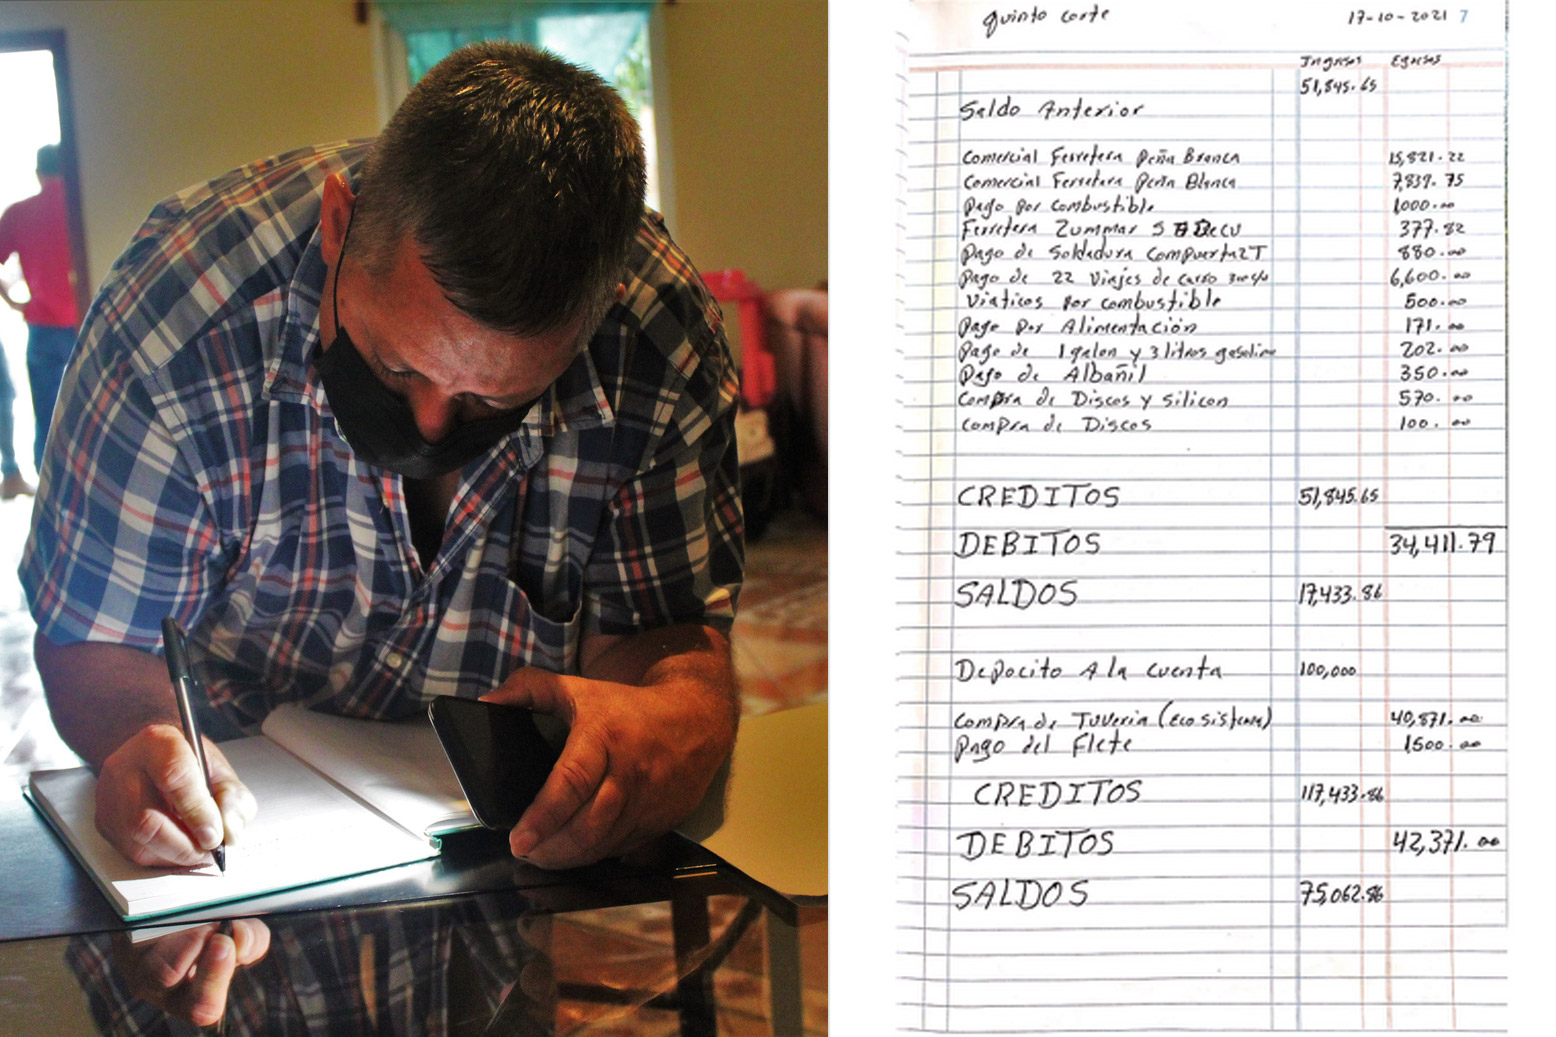 quinto corte 17-10-2021 7
Ingresos Egresos
51,845.65
Saldo Anterior
Comercial Ferretera Peña Branca 15,821.22
Comercial Ferretera Peña Blanca 7,839.75
Pago por combustible 1000.00
Ferretera Zummar 377.82
Pago de Soldadura Compuerta 2T 880.00
Pago de 22 Viajes de carro 300 c/u 6,600.00
Viaticos por combustible 500.00
Pago por Alimentación 171.00
Pago de 1 galon y 3 litros gasolina 202.00
Pago de Albañil 350.00
Compra de Discos y silicon 570.00
Compra de Discos 100.00
CREDITOS 51,845.65
DEBITOS 34,411.79
SALDOS 17,433.86
Depocito A la cuenta 100,000
Compra de Tuveria (Eco sistema) 40,871.00
Pago del Flete 1500.00
CREDITOS 117,433.86
DEBITOS 42,371.00
SALDOS 75,062.86